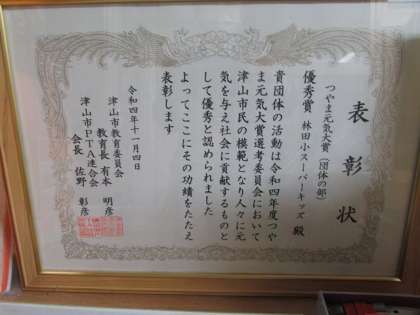 表彰状
つやま元気大賞(団体の部)
優秀賞 林田小スーパーキッズ 殿
貴団体の活動は令和四年度つや
ま元気大賞選考委員会において
津山市民の模範となり人々に元
気を与え社会に貢献するものと
して優秀と認められました
よってここにその功績をたたえ
表彰します
令和四年十一月四日
津山市教育委員会
教育長 有本 明彦
津山市PTA連合会
会長 佐野 彰彦